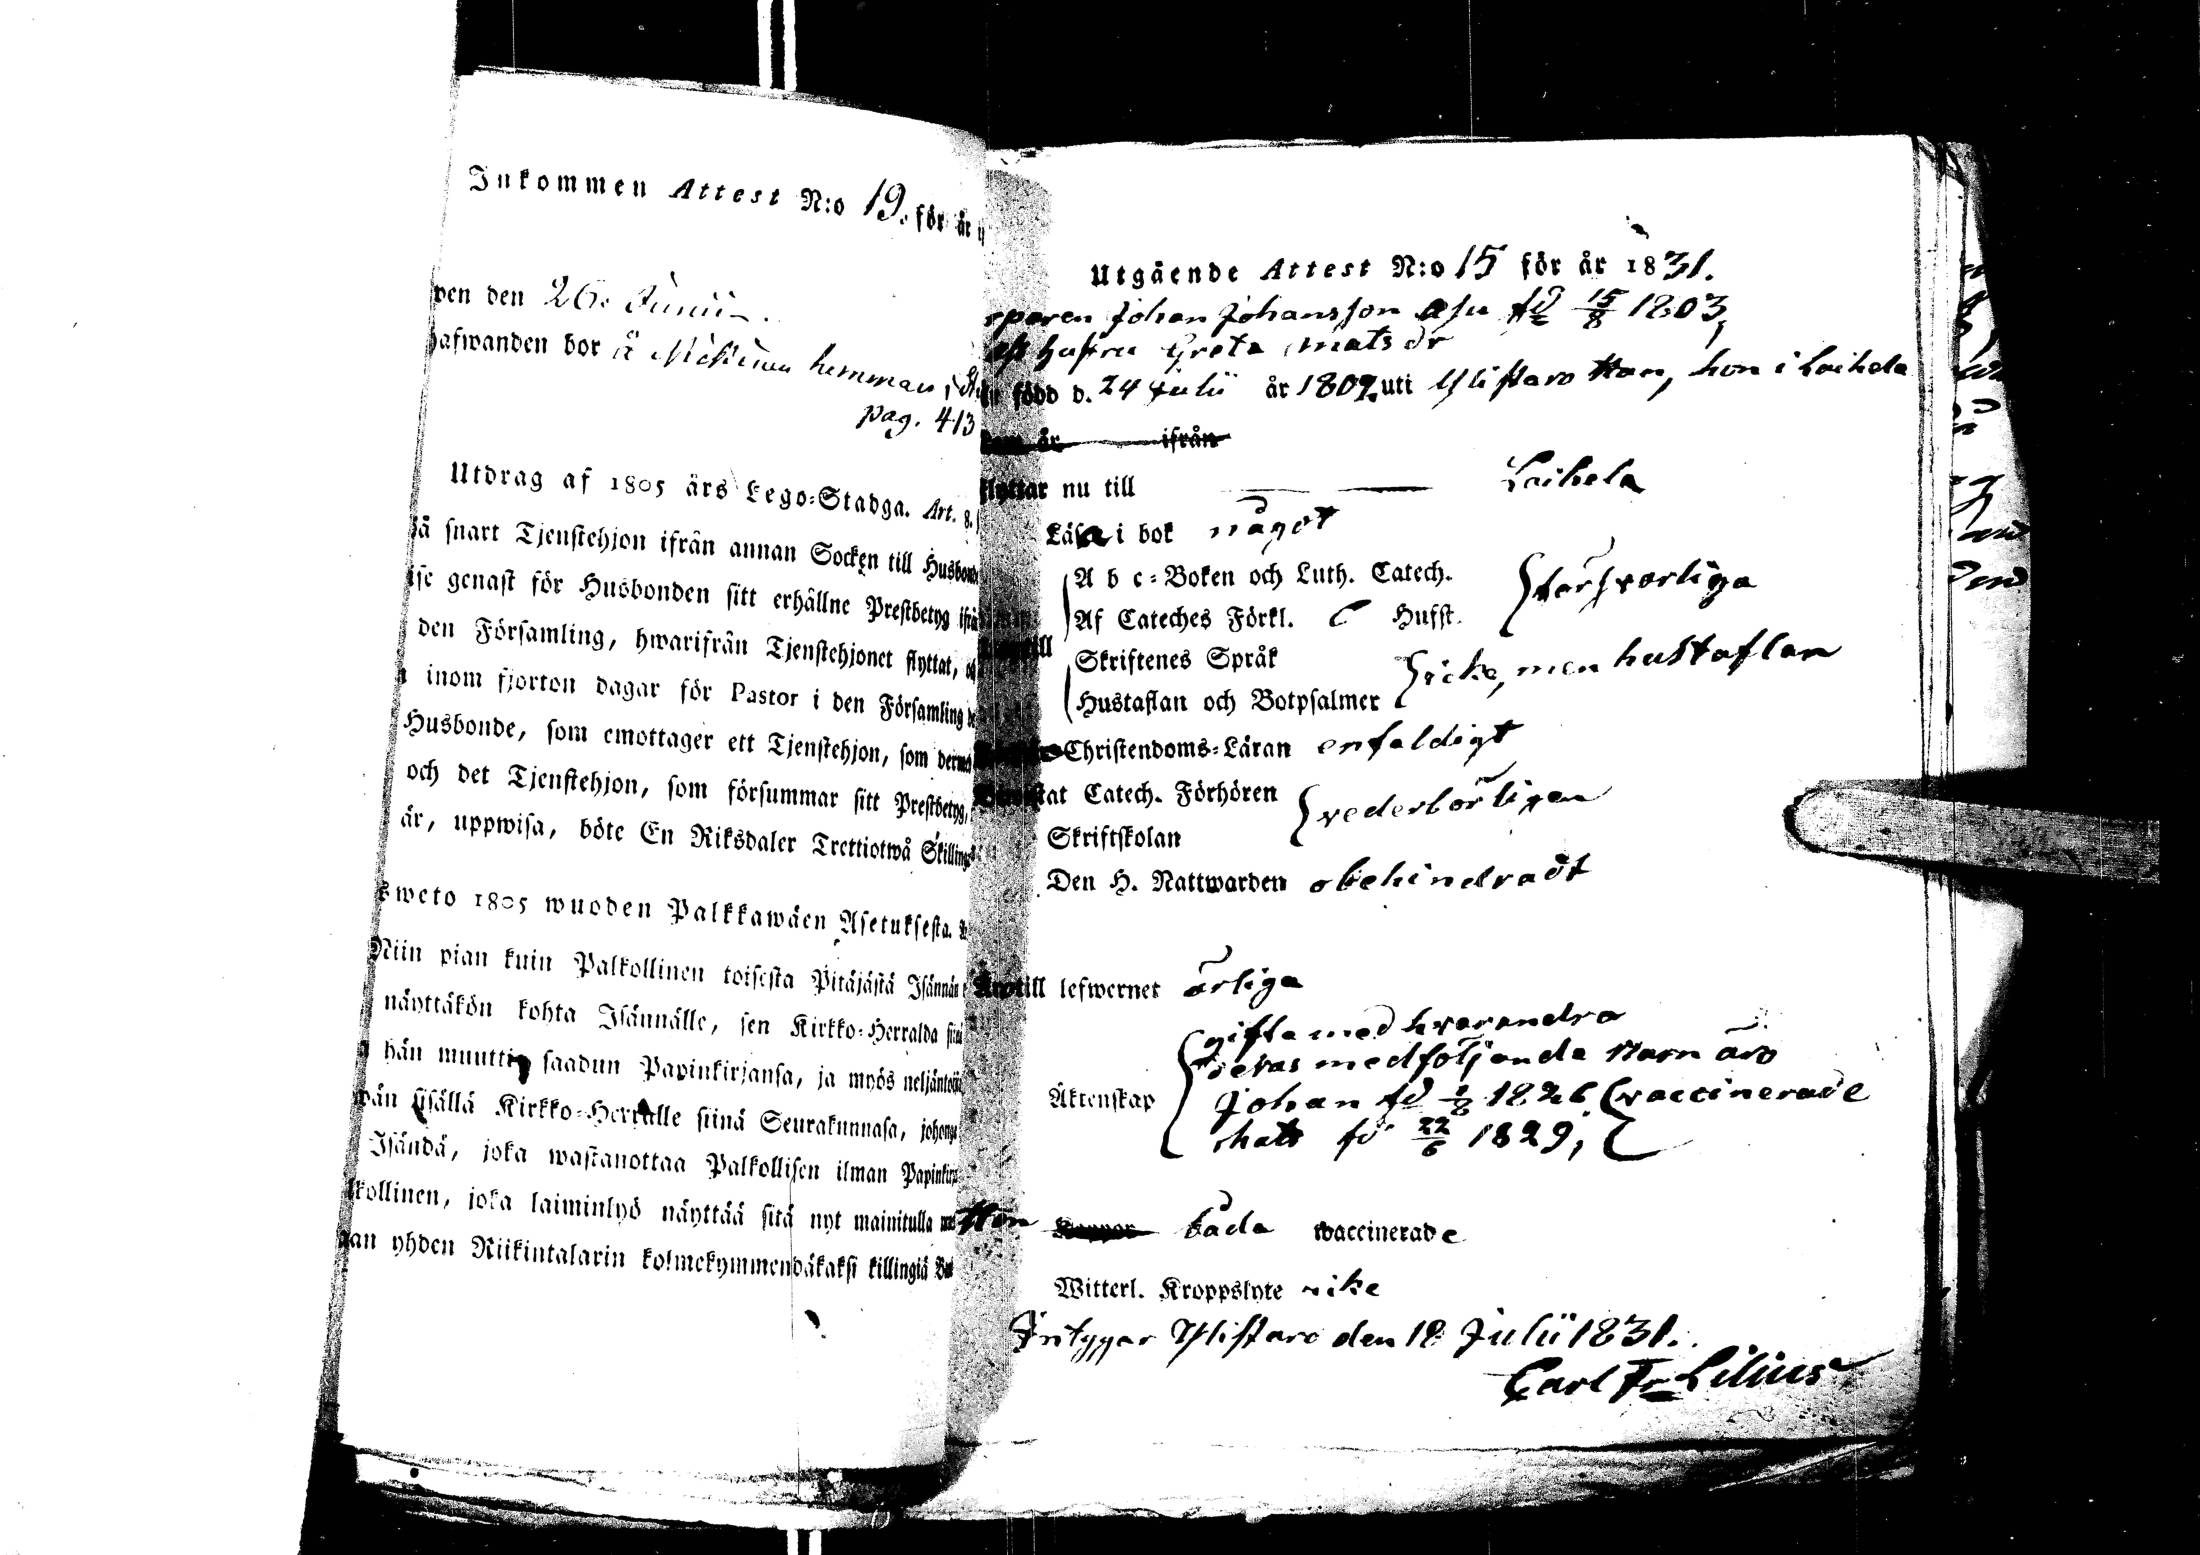 Inkommen Attest N:o 19. för år
den 26. Junii
hafwanden bor å hemman
pag. 413
Utdrag af 1805 års Lego-Stadga. Art. 8.
så snart Tjenstehjon ifrån annan Socken till Husbonde
genast för Husbonden sitt erhållne Prestbetyg ifrå
den Församling, hwarifrån Tjenstehjonet flyttat,
inom fjorton dagar för Pastor i den Församling
Husbonde, som emottager ett Tjenstehjon, som
och det Tjenstehjon, som försummar sitt Prestbetyg,
är, uppwisa, böte En Riksdaler Trettiotwå Skilling
weto 1805 wuoden Palkkawäen Asetuksesta.
Niin pian kuin Palkollinen toisesta Pitäjästä Isännän
näyttäkön kohta Isännälle, sen Kirkko-Herralda
hän muuttin saadun Papinkirjansa, ja myös
sisällä Kirkko-Herralle siinä Seurakunnasa,
Isändä, joka wastanottaa Palkollisen ilman
kollinen, joka laiminlyö näyttää sitä nyt mainitulla
yhden Riikintalarin kolmekymmendäkaksi killingiä
Utgående Attest N:o 15 för år 1831.
Johan Johansson fd 15/8 1803,
hustru Greta Mats dr
född d. 24 Julii år 1809. uti Ylistaro han, hon i Laihela
år ifrån
flyttar nu till Laihela
Läsa i bok något
A b c-Boken och Luth. Catech.
Af Cateches Förkl. Husst.
Skriftenes Språk
Hustaflan och Botpsalmer icke, men hustaflan
Christendoms-Läran enfaldigt
Catech. Förhören
vederbörligen
Skriftskolan
Den H. Nattwarden obehindradt
till lefwernet ärliga
gifta med hvarandra
deras medföljande barn äro
Äktenskap Johan fd 2/8 1826 vaccinerade
Mats fd 22/6 1829,
båda waccinerade
Witterl. Kroppslyte icke
Intygar Ylistaro den 18 Julii 1831.
Carl Fr Lilius